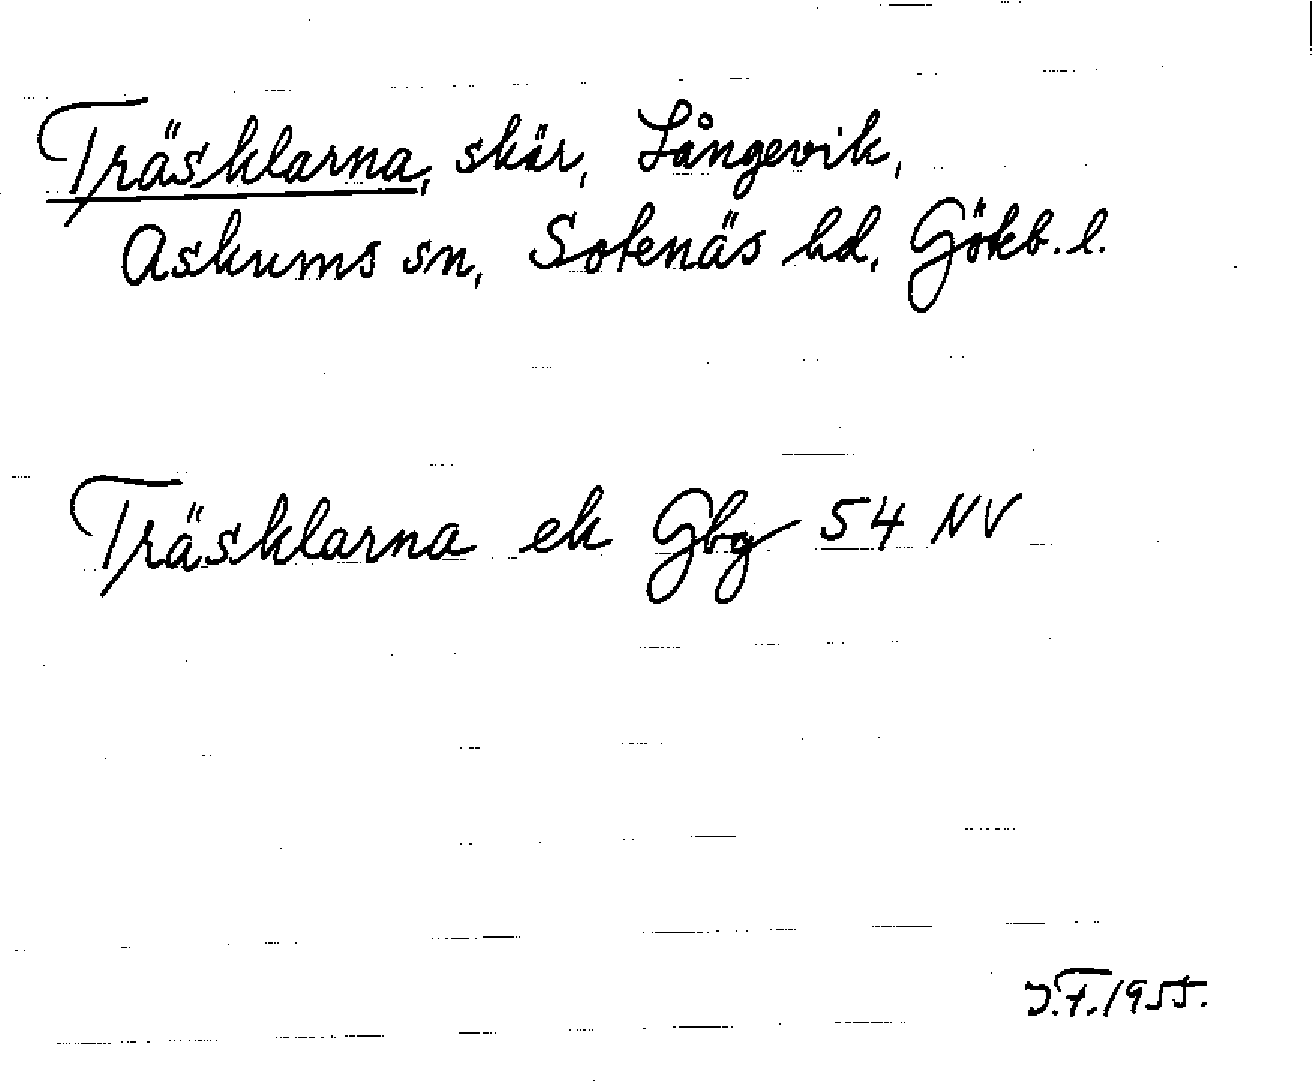 Träsklarna, skär, Långevik,
Askums sn, Sotenäs hd, Göteb. l.
Träsklarna ek Gbg 54 NV
J.F. 1955.